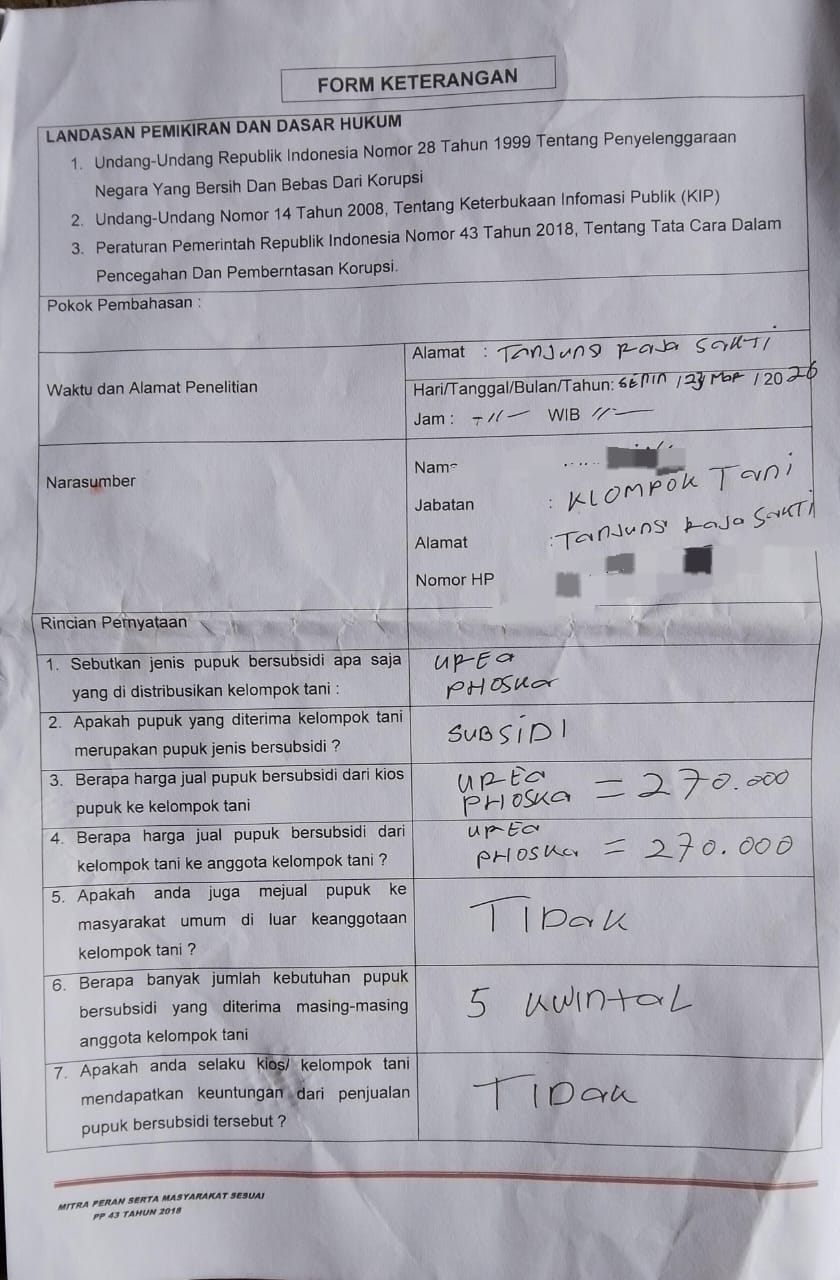 FORM KETERANGAN
LANDASAN PEMIKIRAN DAN DASAR HUKUM
1. Undang-Undang Republik Indonesia Nomor 28 Tahun 1999 Tentang Penyelenggaraan
Negara Yang Bersih Dan Bebas Dari Korupsi
2. Undang-Undang Nomor 14 Tahun 2008, Tentang Keterbukaan Infomasi Publik (KIP)
3. Peraturan Pemerintah Republik Indonesia Nomor 43 Tahun 2018, Tentang Tata Cara Dalam
Pencegahan Dan Pemberntasan Korupsi.
Pokok Pembahasan :
Waktu dan Alamat Penelitian
Alamat : Tanjung Raja Sakti
Hari/Tanggal/Bulan/Tahun: SENIN / 23 Mar / 2026
Jam : WIB
Narasumber
Nama
Jabatan : KLOMPOK Tani
Alamat : Tanjung Raja Sakti
Nomor HP
Rincian Pernyataan
1. Sebutkan jenis pupuk bersubsidi apa saja
yang di distribusikan kelompok tani :
UREa
PHOSKa
2. Apakah pupuk yang diterima kelompok tani
merupakan pupuk jenis bersubsidi ?
SUBSiDI
3. Berapa harga jual pupuk bersubsidi dari kios
pupuk ke kelompok tani
UREa
PHOSKa = 270.000
4. Berapa harga jual pupuk bersubsidi dari
kelompok tani ke anggota kelompok tani ?
UREa
PHOSKa = 270.000
5. Apakah anda juga mejual pupuk ke
masyarakat umum di luar keanggotaan
kelompok tani ?
TIDak
6. Berapa banyak jumlah kebutuhan pupuk
bersubsidi yang diterima masing-masing
anggota kelompok tani
5 KWINtaL
7. Apakah anda selaku kios/ kelompok tani
mendapatkan keuntungan dari penjualan
pupuk bersubsidi tersebut ?
TIDak
MITRA PERAN SERTA MASYARAKAT SESUAI
PP 43 TAHUN 2018